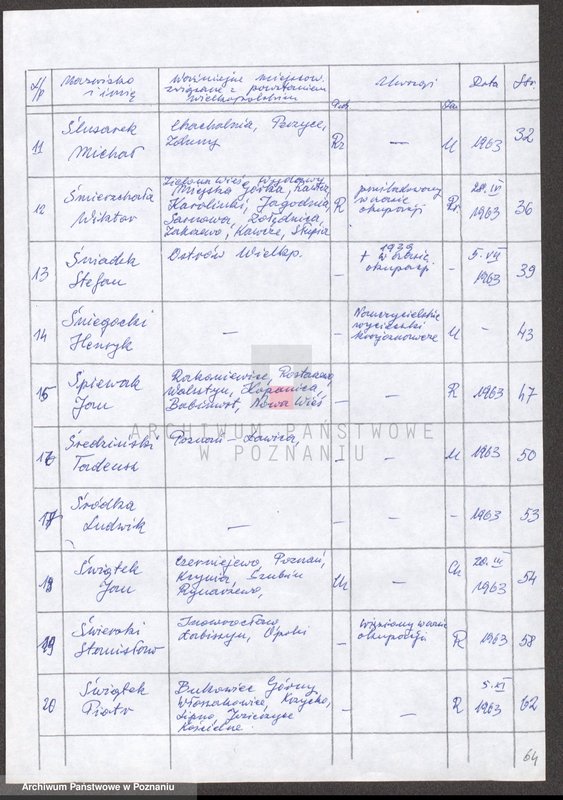 L/p Nazwisko i imię
Ważniejsze miejscow. związane z powstaniem wielkopolskim
Uwagi Data Str.
11 Ślusarek Michał
Chachalnia, Perzyce, Zduny
Rz — U 1963 32
12 Śmierzchała Wiktor
Zielona Wieś, Wydawy,
Miejska Górka, Rawicz,
Karolinki, Jagodnia,
Sarnowa, Żołędnica,
Zakrzewo, Kawcze, Słupia
R prześladowany w czasie okupacji R 20.IV 1963 36
13 Śniadek Stefan
Ostrów Wielkp.
– + 1939 w czasie okupacji – 5.VII 1963 39
14 Śniegocki Henryk
—
Nauczycielskie wycieczki krajoznawcze U – 43
15 Śpiewak Jan
Rakoniewice, Rostarzewo,
Wolsztyn, Kopanica,
Babimost, Nowa Wieś
– — R 1963 47
16 Średziński Tadeusz
Poznań – Ławica,
– — U 1963 50
17 Śródka Ludwik
—
– — – 1963 53
18 Świątek Jan
Czerniejewo, Poznań,
Krynia, Szubin
Rynarzewo,
Ch — Ch 20.III 1963 54
19 Świerski Stanisław
Inowrocław
Łabiszyn, Opoki
– Więziony w czasie okupacji R 1963 58
20 Świątek Piotr
Bukowiec Górny,
Włoszakowice, Krzycko,
Lipno, Jezierzyce
Kościelne.
– — R 5.XI 1963 62
64
ARCHIWUM PAŃSTWOWE
W POZNANIU
Archiwum Państwowe w Poznaniu